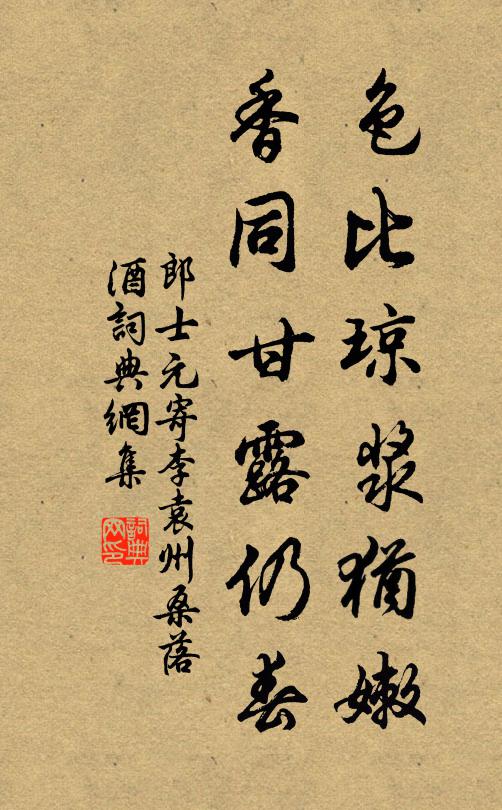 色比琼浆猶嫩
香同甘露仍春
郎士元寄李袁州桑落
酒詞典網集
詞典网印